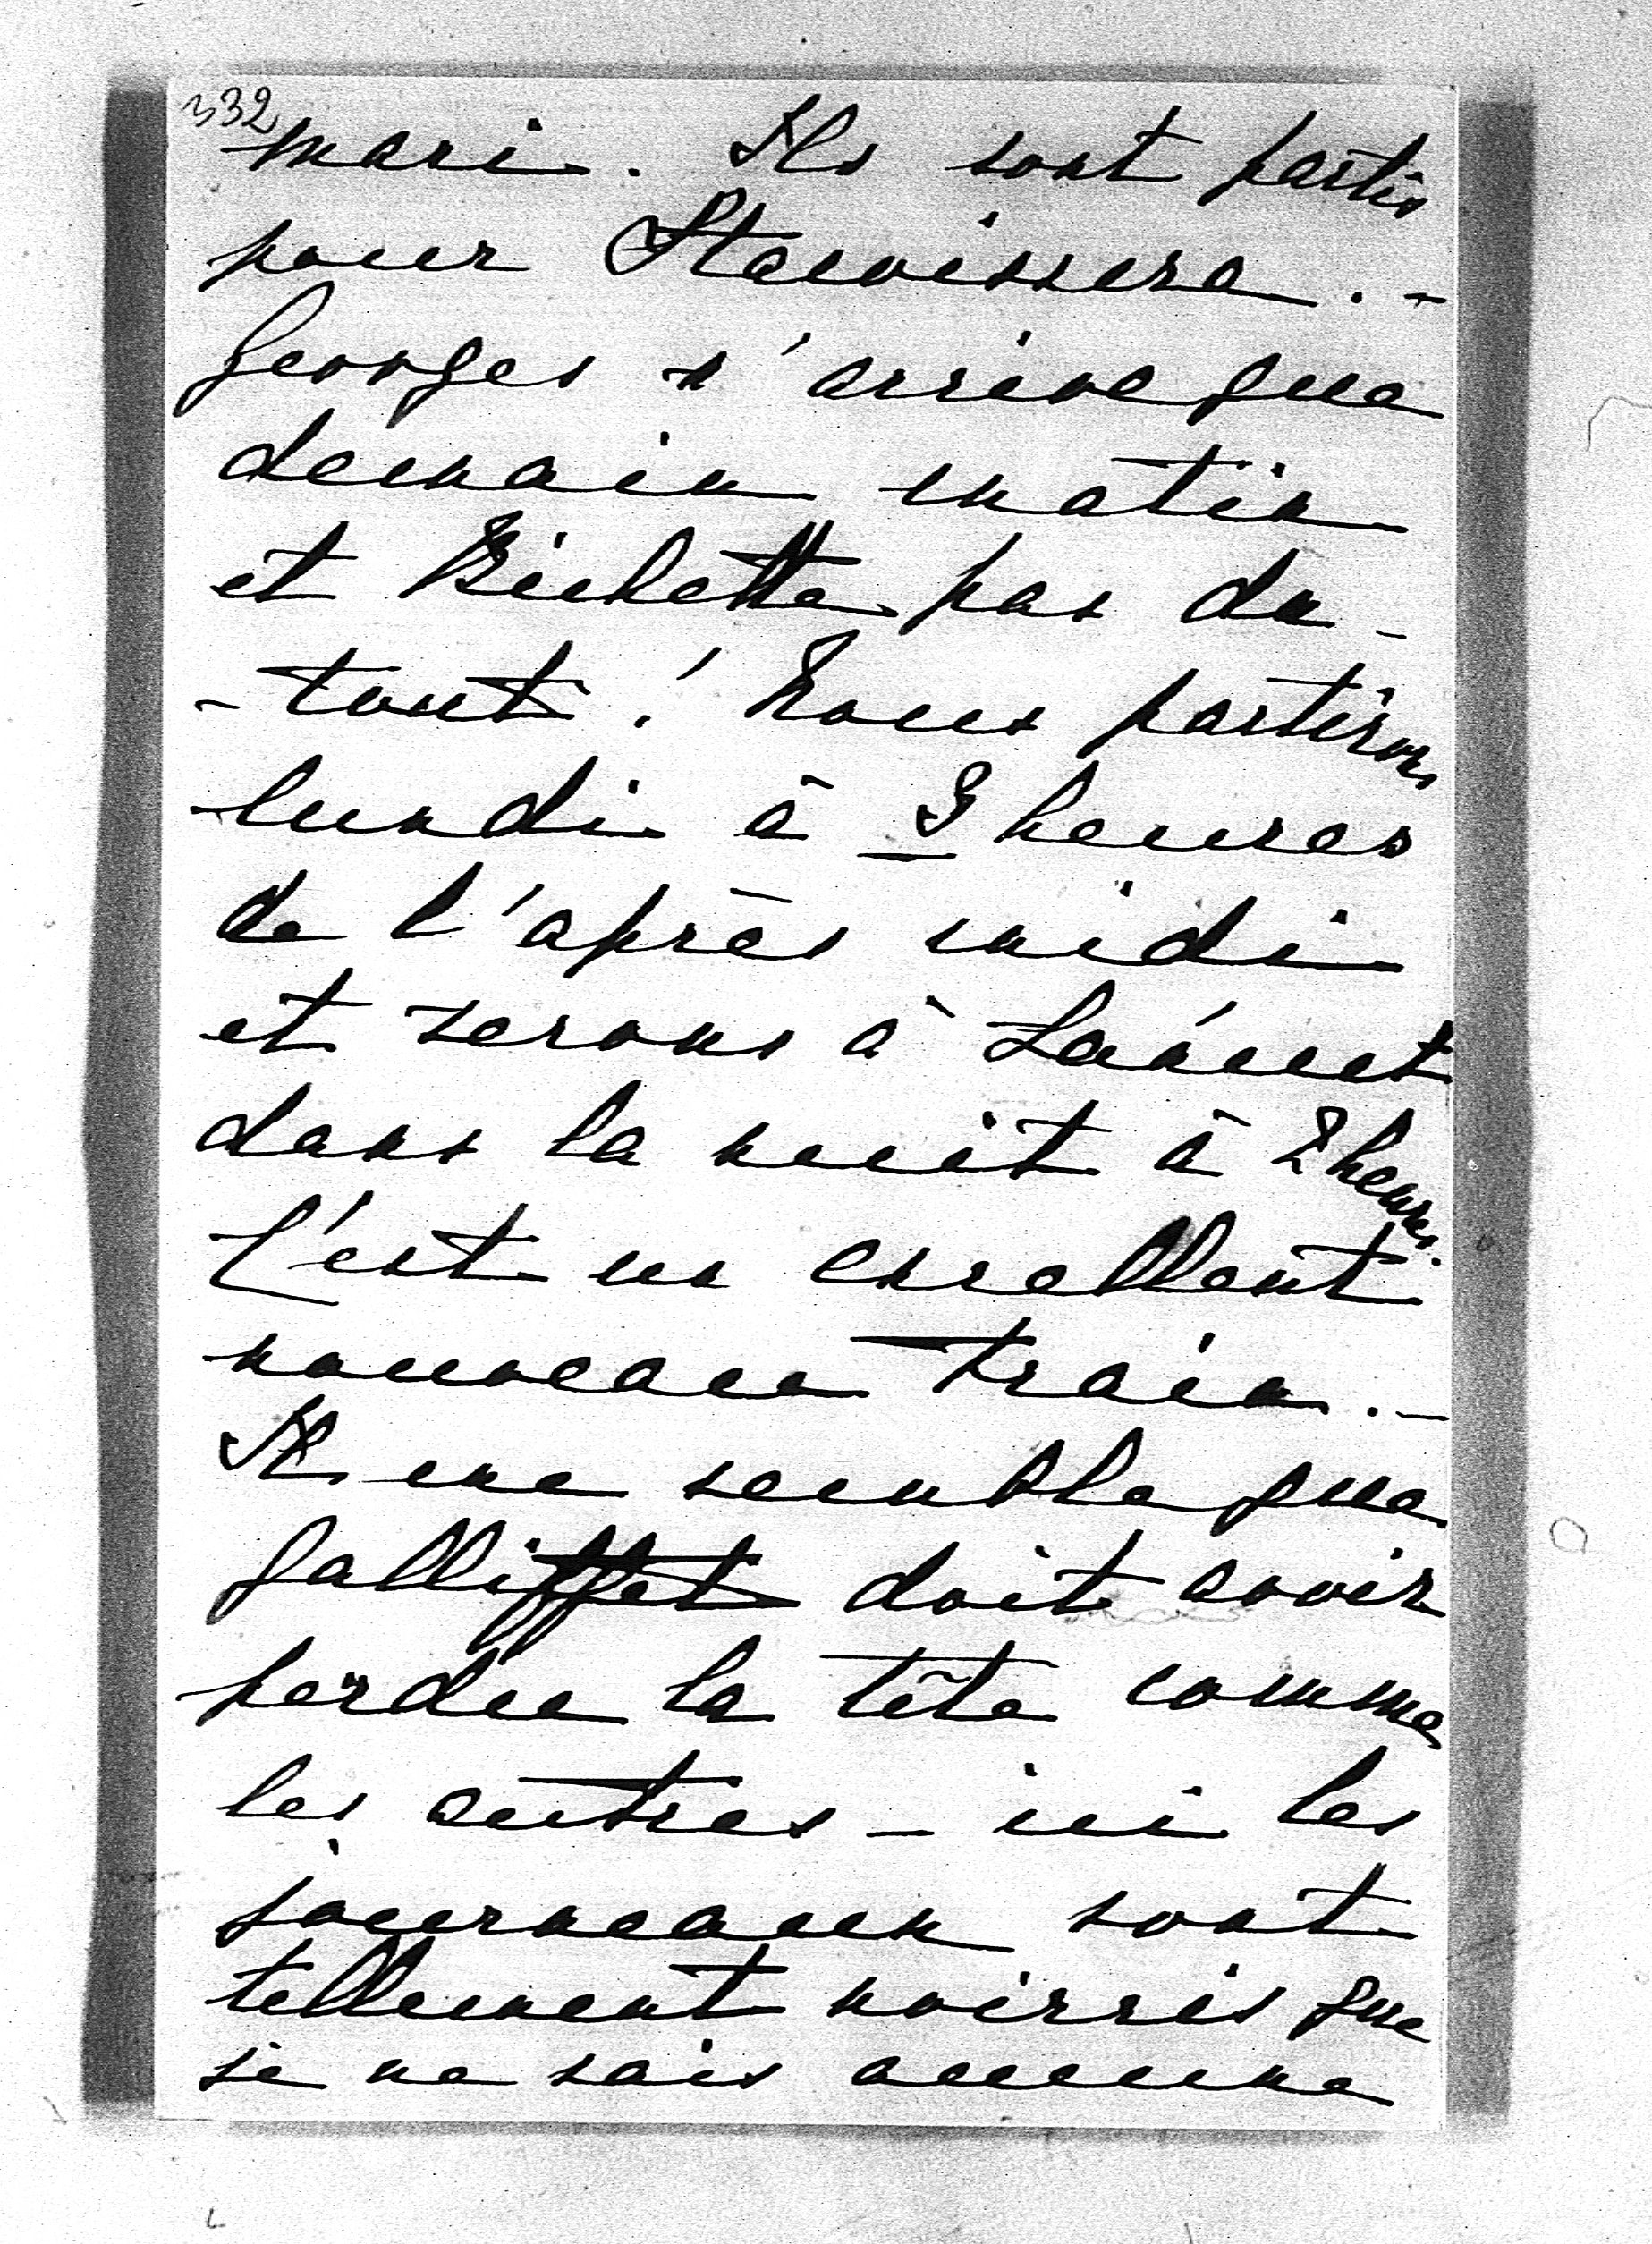 332
mari. Ils sont partis
pour Stawissera. -
Georges n'arrive que
demain matin
et Bichette pas du -
- tout ! Nous partirons
lundi à 3 heures
de l'après midi
et serons à Łańcut
dans la nuit à 2 heures.
C'est un excellent
nouveau train. -
Il me semble que
Galliffet doit avoir
perdu la tête comme
les autres - ici les
journeaux sont
tellement noircis que
je ne sais aucune